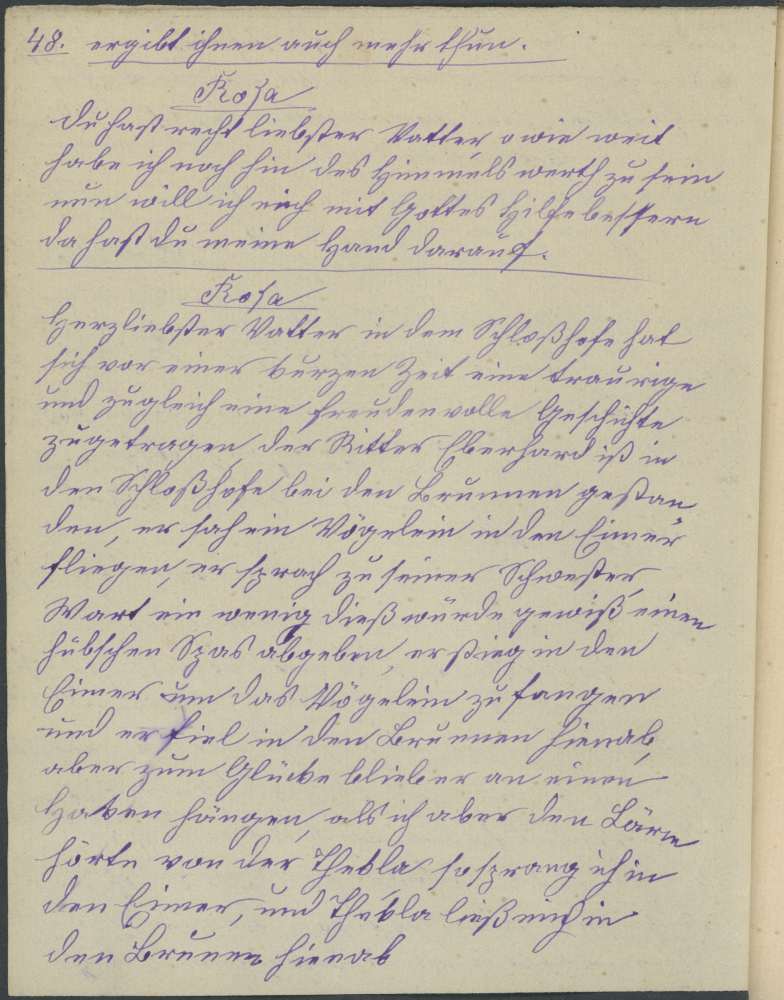 48. ergibt ihnen auch mehr thun.
Rosa
du hast recht liebster Vatter o wie weit
habe ich noch hin des Himmels werth zu sein
nun will ich mich mit Gottes Hilfe bessern
da hast du meine Hand darauf.
Rosa
Herzliebster Vatter in dem Schloßhofe hat
sich vor einer kurzen Zeit eine traurige
und zugleich eine freudenvolle Geschichte
zugetragen, der Ritter Eberhard ist in
den Schloßhofe bei den Brunnen gestan
den, er sah ein Vögelein in den Eimer
fliegen, er sprach zu seiner Schwester,
Wart ein wenig dieß würde gewiß einen
hübschen Spas abgeben, er stieg in den
Eimer um das Vögelein zu fangen
und er fiel in den Brunnen hienab,
aber zum Glücke blieb er an einen
Haken hängen, als ich aber den Lärm
hörte von der Thekla so sprang ich in
den Eimer, und Thekla ließ mich in
den Brunen hienab